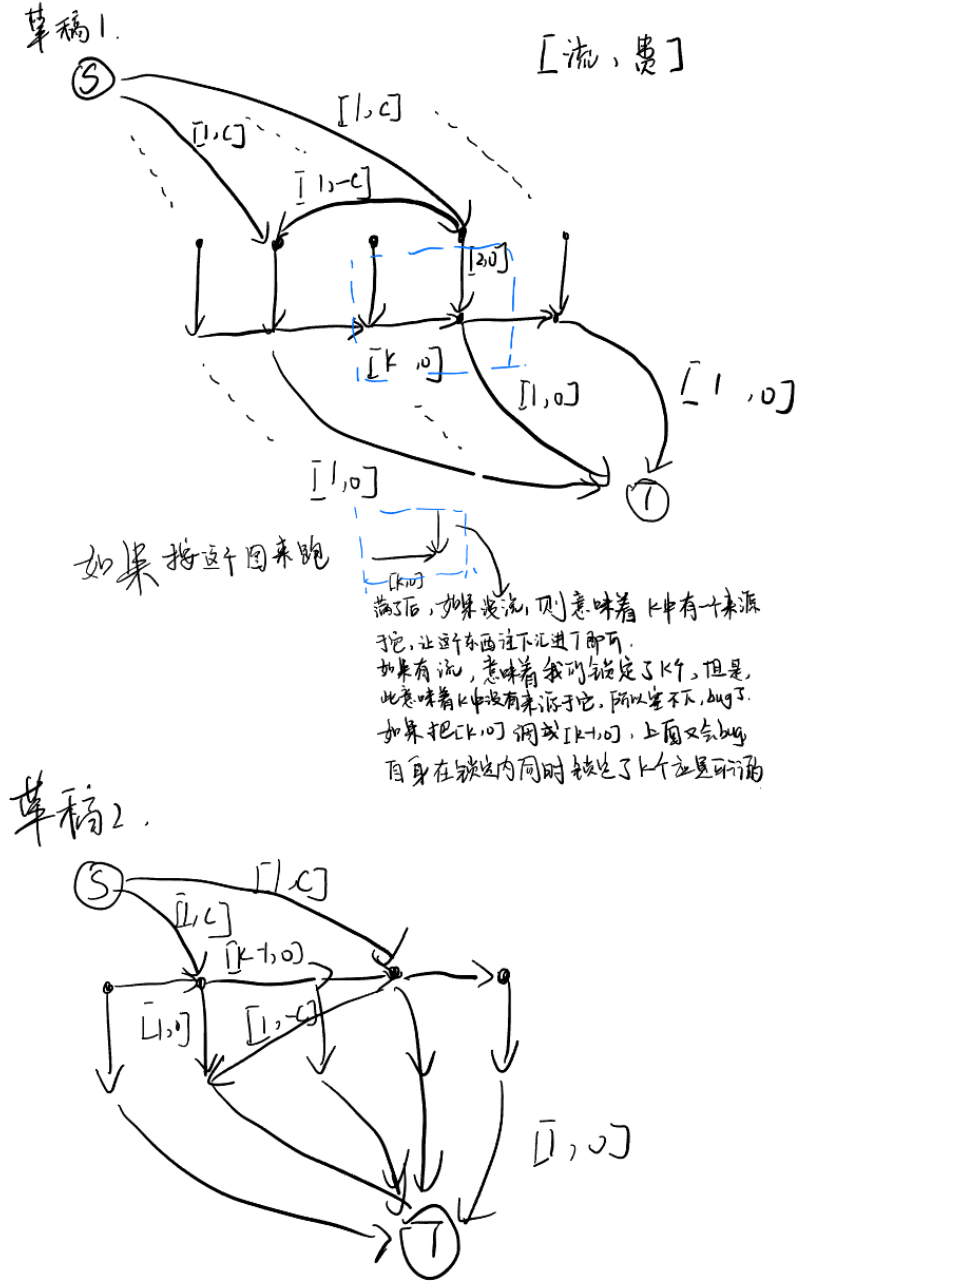 草稿1.
[流,费]
S
[1,c]
[1,c]
[1,-c]
[2,0]
[k,0]
[1,0]
[1,0]
[1,0]
T
如果按这个图来跑
[k,0]
满了后,如果没流,则意味着k中有一个来源
于它,让这个东西往下汇进T即可.
如果有流,意味着我们锁定了k个,但是,
此意味着k中没有来源于它,所以塞不下,bug了.
如果把[k,0]调成[k-1,0],上面又会bug
自身在锁定内同时锁定了k个应是可行的
草稿2.
S
[1,c]
[1,c]
[k-1,0]
[1,0]
[1,-c]
[1,0]
T